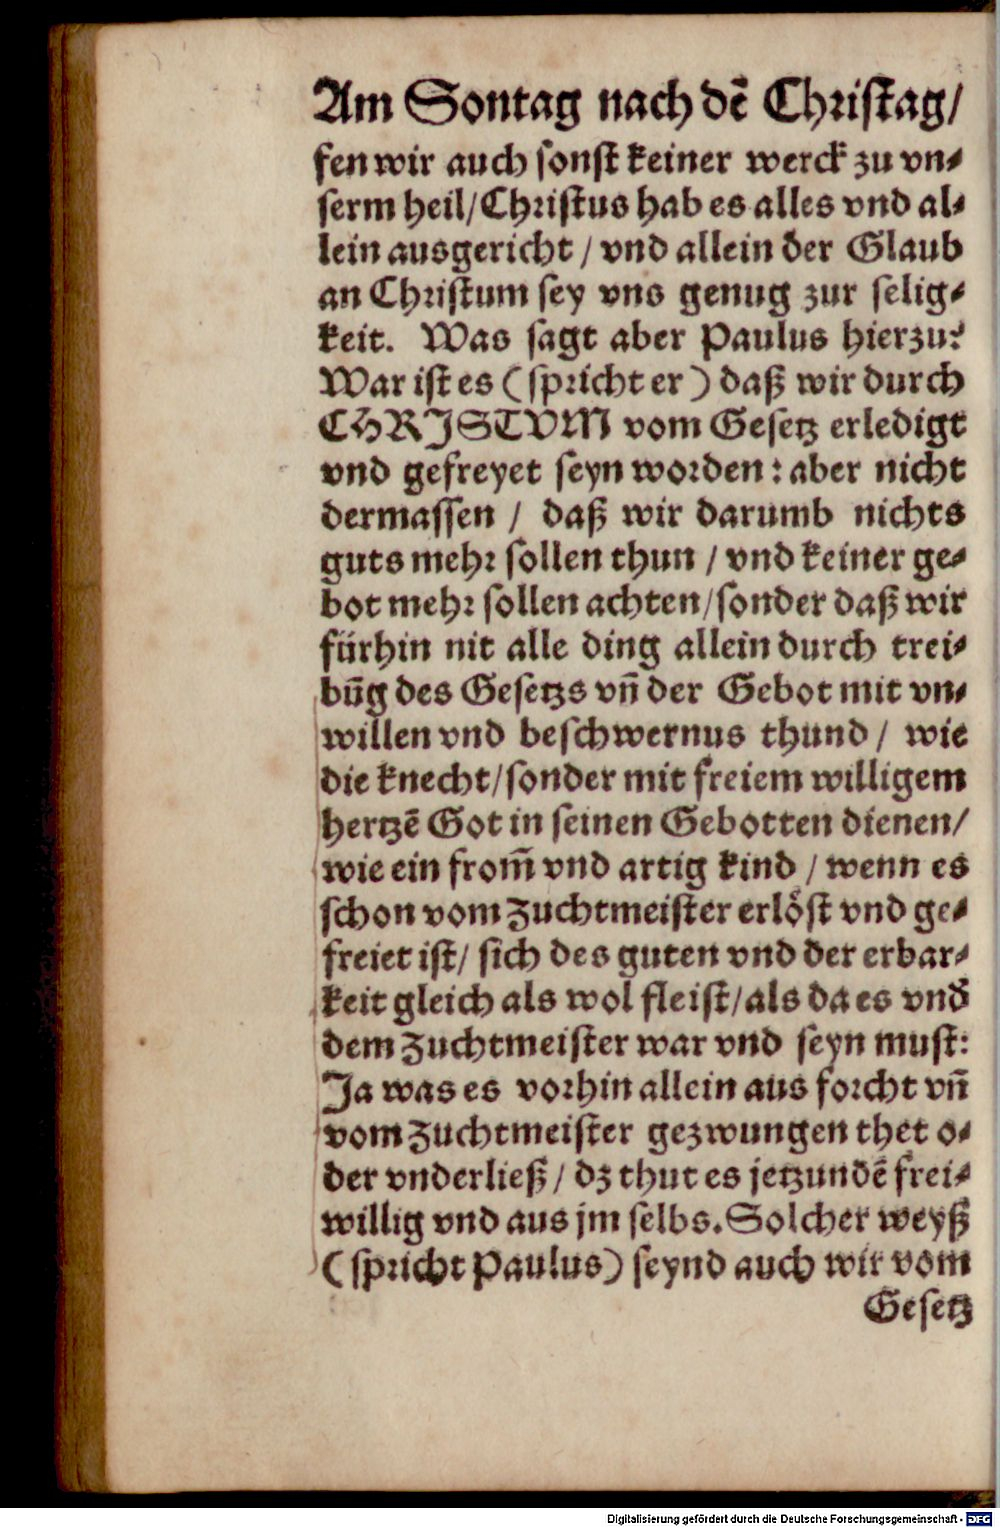 Am Sontag nach dē Christag/
fen wir auch sonst keiner werck zu vn⸗
serm heil/Christus hab es alles vnd al⸗
lein ausgericht / vnd allein der Glaub
an Christum sey vns genug zur selig⸗
keit. Was sagt aber Paulus hierzu?
War ist es (spricht er) daß wir durch
CHRJSTVM vom Gesetz erledigt
vnd gefreyet seyn worden: aber nicht
dermassen / daß wir darumb nichts
guts mehr sollen thun / vnd keiner ge⸗
bot mehr sollen achten/sonder daß wir
fürhin nit alle ding allein durch trei⸗
būg des Gesetzs vn̄ der Gebot mit vn⸗
willen vnd beschwernus thund / wie
die knecht/sonder mit freiem willigem
hertzē Got in seinen Gebotten dienen/
wie ein from̄ vnd artig kind / wenn es
schon vom Zuchtmeister erlöst vnd ge⸗
freiet ist/ sich des guten vnd der erbar⸗
keit gleich als wol fleist/als da es vnd̄
dem Zuchtmeister war vnd seyn must:
Ja was es vorhin allein aus forcht vn̄
vom Zuchtmeister gezwungen thet o⸗
der vnderließ / dz thut es jetzundē frei⸗
willig vnd aus jm selbs. Solcher weyß
(spricht Paulus) seynd auch wir vom
Gesetz
Digitalisierung gefördert durch die Deutsche Forschungsgemeinschaft - DFG